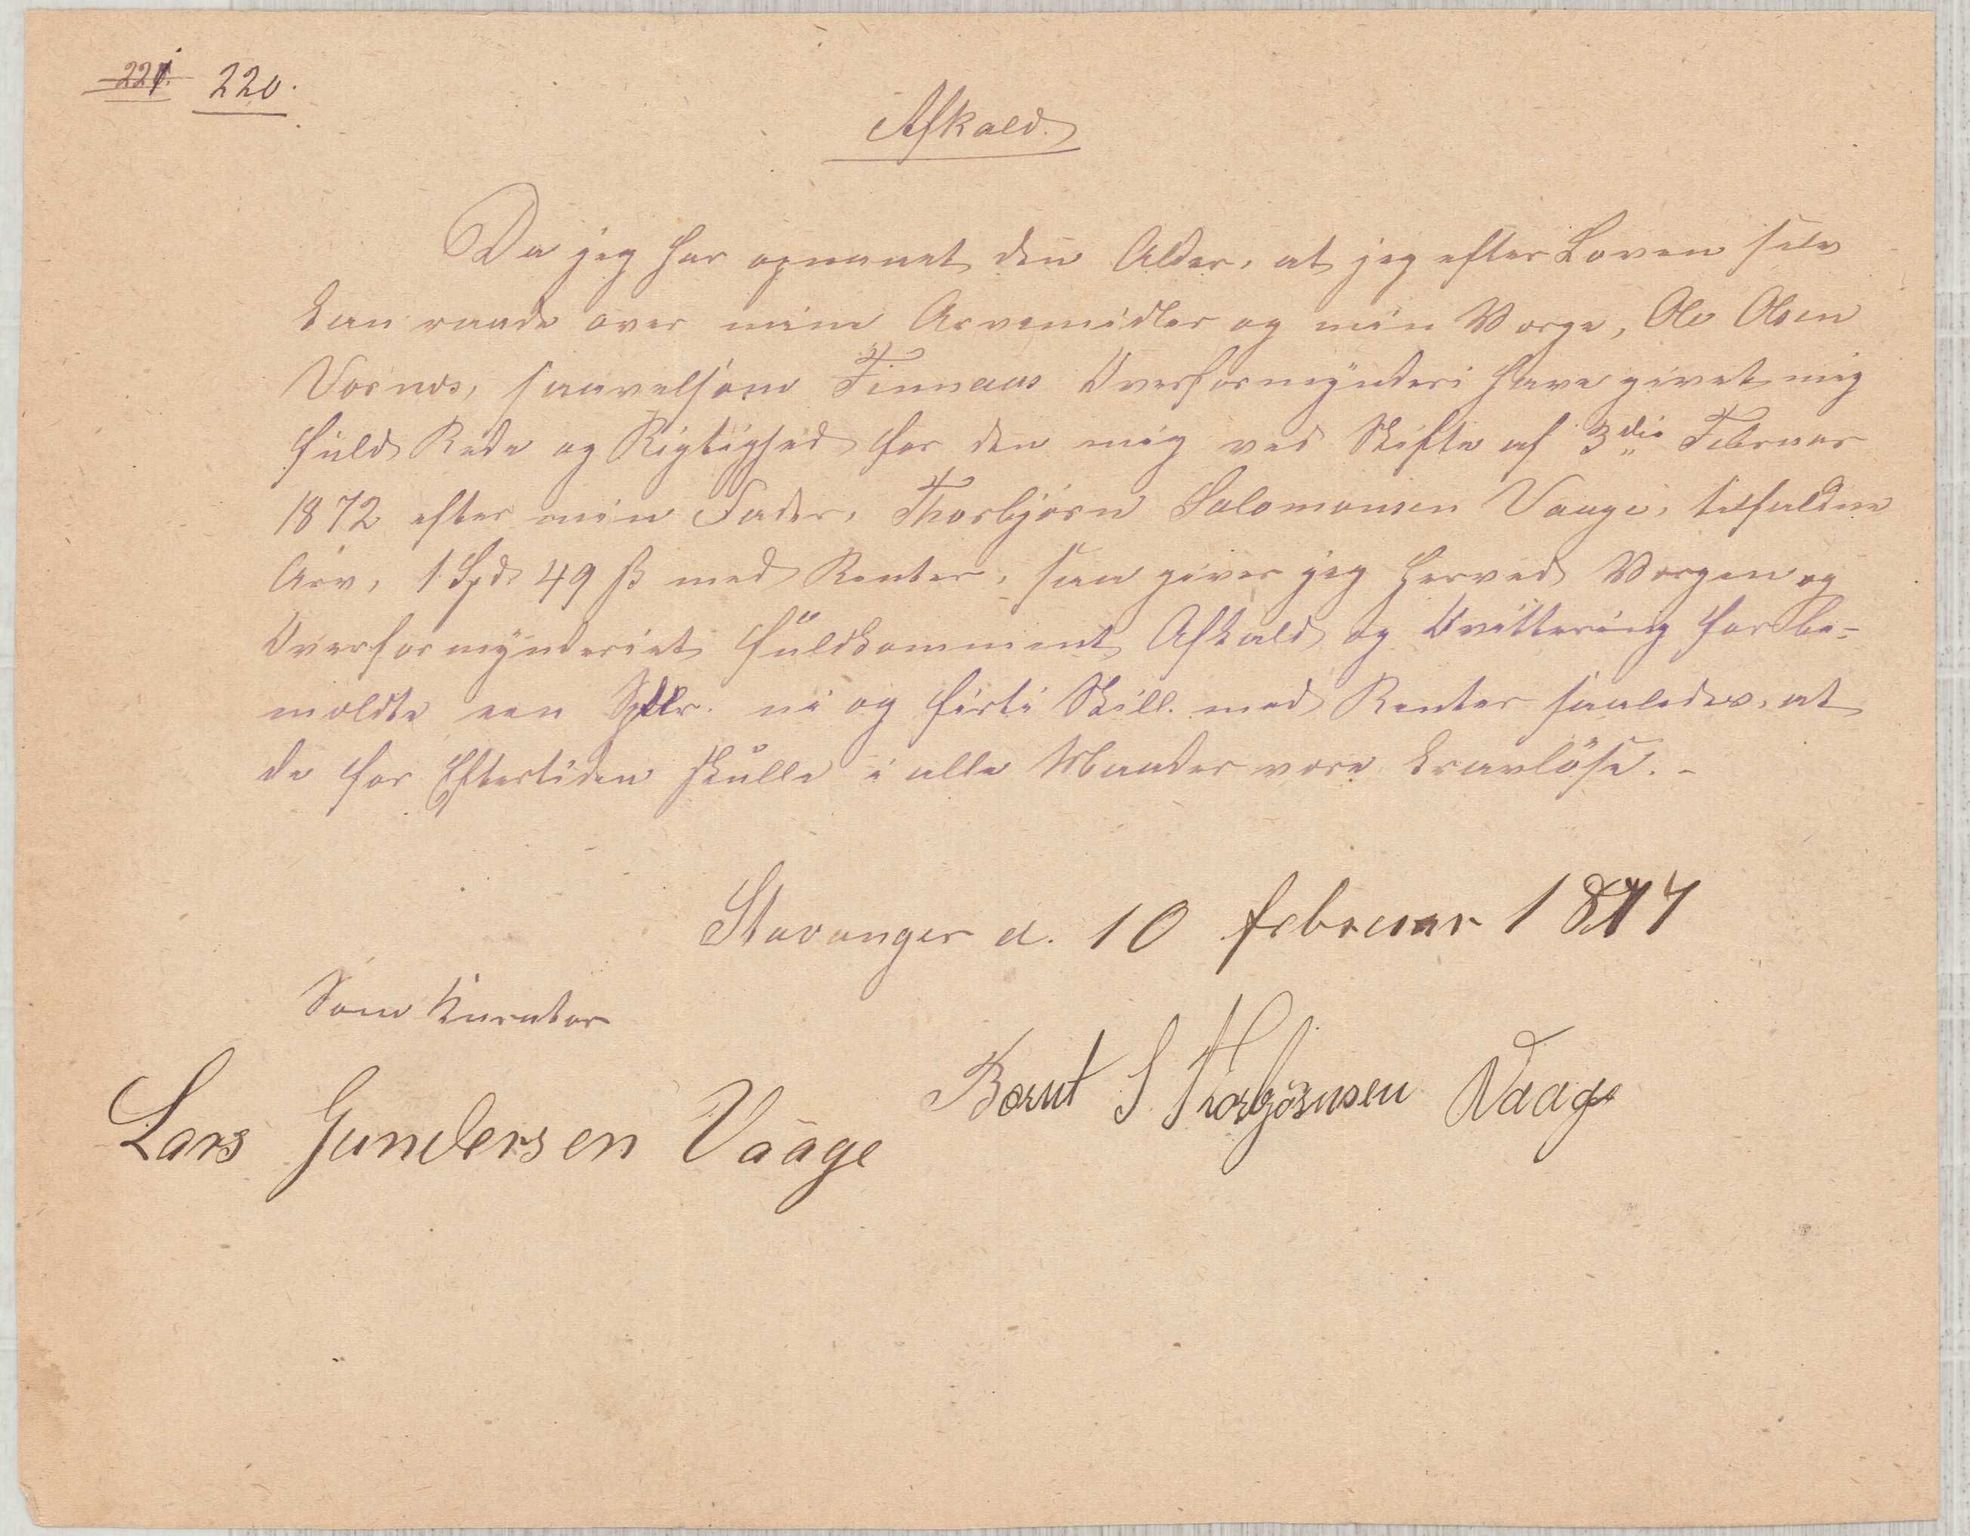 221. 220.
Afkald
Da jeg har opnaaet den Alder, at jeg efter Loven selv
kan raade over mine Arvemidler og min Værge, Ole Olsen
Vornes, saavelsom Finnaas Overformynderi have givet mig
fuld Rede og Rigtighed for den mig ved Skifte af 3die Februar
1872 efter min Fader, Thorbjörn Salomonsen Vaage, tilfaldne
Arv, 1 Spd 49 ß med Renter, saa giver jeg herved Værgen og
Overformynderiet fuldkomment Afkald og Kvittering for be-
meldte een Spdlr. ni og firti Skill. med Renter saaledes, at
de for Eftertiden skulle i alle Maader være kravlöse. -
Stavanger d. 10 februar 1877
Som Kurator
Bernt S Thorbjörnsen Vaage
Lars Gundersen Vaage